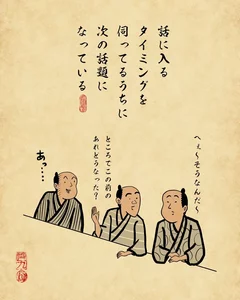 話に入る
タイミングを
伺ってるうちに
次の話題に
なっている
へぇ〜そうなんだ〜
ところでこの前の
あれどうなった？
あっ…